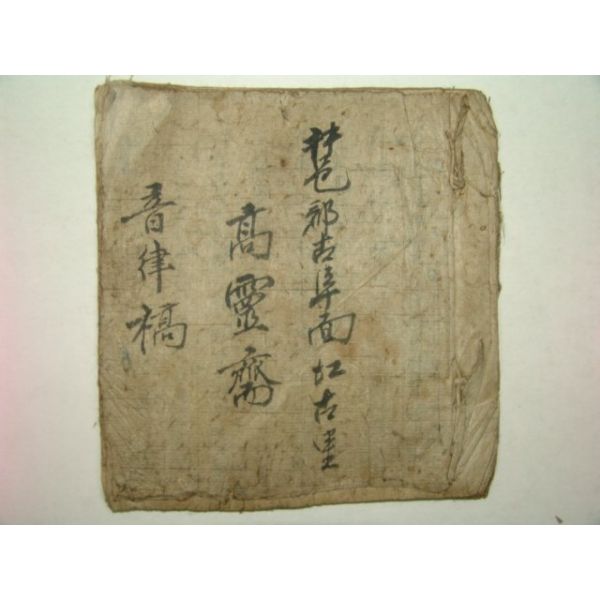 井邑郡古阜面江古里
高靈齋
音律稿